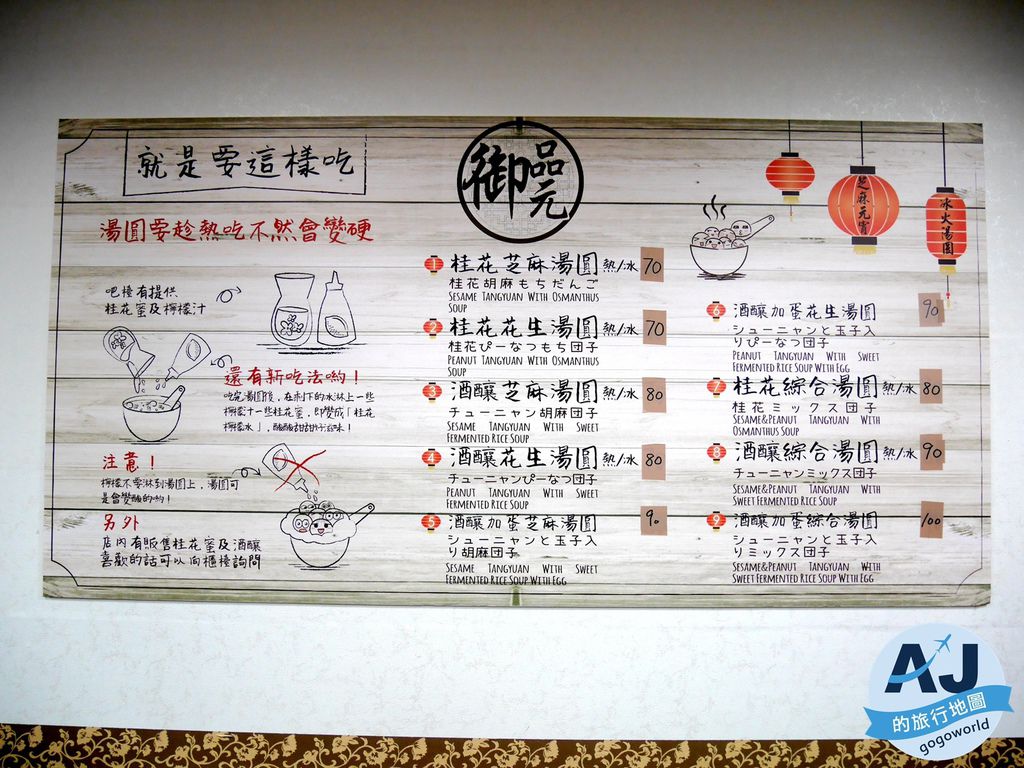 就是要這樣吃
湯圓要趁熱吃不然會變硬
吧檯有提供
桂花蜜及檸檬汁
還有新吃法喲！
吃完湯圓後，在剩下的冰淋上一些
檸檬汁一些桂花蜜，即變成「桂花
檸檬冰」，酸酸甜甜好滋味！
注意！
檸檬不要淋到湯圓上，湯圓可
是會變酸的喲！
另外
店內有販售桂花蜜及酒釀
喜歡的話可以向櫃檯詢問
御品元
芝麻元宵
冰火湯圓
1 桂花芝麻湯圓 熱/冰 70
桂花胡麻もちだんご
Sesame Tangyuan With Osmanthus
Soup
2 桂花花生湯圓 熱/冰 70
桂花ぴーなつもち団子
Peanut Tangyuan With Osmanthus
Soup
3 酒釀芝麻湯圓 熱/冰 80
チューニャン胡麻団子
Sesame Tangyuan With Sweet
Fermented Rice Soup
4 酒釀花生湯圓 熱/冰 80
チューニャンぴーなつ団子
Peanut Tangyuan With Sweet
Fermented Rice Soup
5 酒釀加蛋芝麻湯圓 90
シューニャンと玉子入
り胡麻団子
Sesame Tangyuan With Sweet
Fermented Rice Soup With Egg
6 酒釀加蛋花生湯圓 90
シューニャンと玉子入
りぴーなつ団子
Peanut Tangyuan With Sweet
Fermented Rice Soup With Egg
7 桂花綜合湯圓 熱/冰 80
桂花ミックス団子
Sesame&Peanut Tangyuan With
Osmanthus Soup
8 酒釀綜合湯圓 熱/冰 90
チューニャンミックス団子
Sesame&Peanut Tangyuan With
Sweet Fermented Rice Soup
9 酒釀加蛋綜合湯圓 100
シューニャンと玉子入
りミックス団子
Sesame&Peanut Tangyuan With
Sweet Fermented Rice Soup With Egg
AJ
的旅行地圖
gogoworld